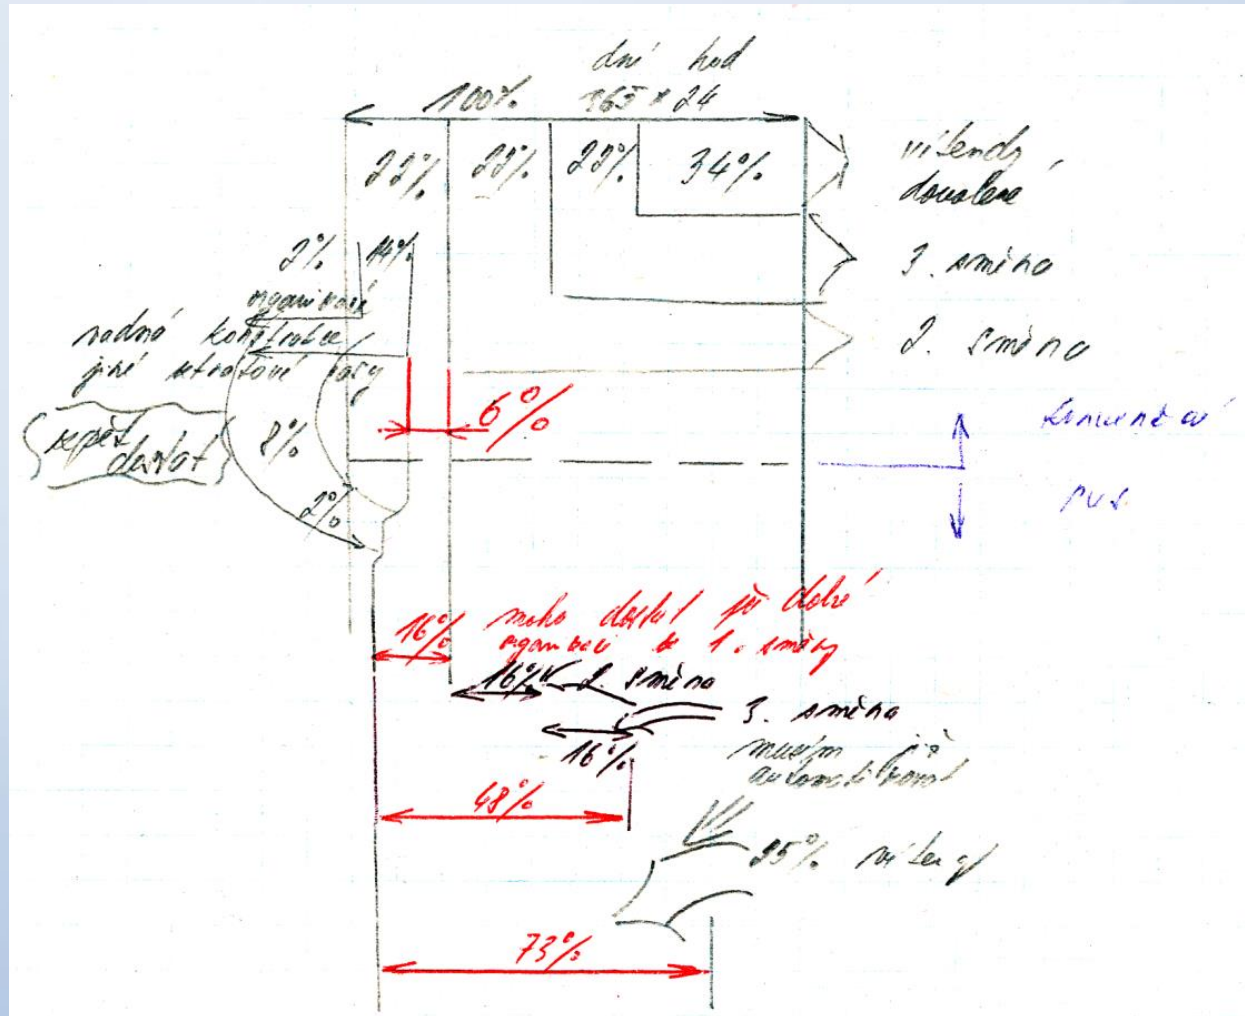 dní hod
100% 365 × 24
22% 22% 22% 34%
víkendy,
dovolené
2% 14%
3. směna
organizace
vadná konstrukce
2. směna
jiné ztrátové časy
6%
zpět
dostat
8%
2%
16% mohu dostat při dobré
organizaci ze 1. směny
16% 2. směna
3. směna
16% musím již
automatizovat
48%
25% víkendy
73%